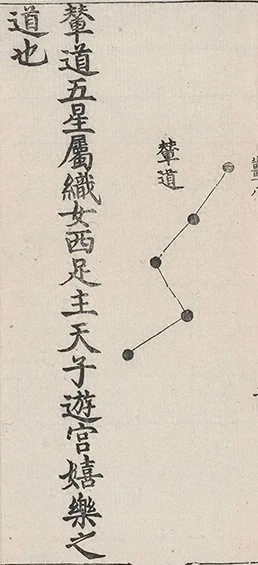 輦道
輦道五星屬織女西足主天子遊宮嬉樂之
道也